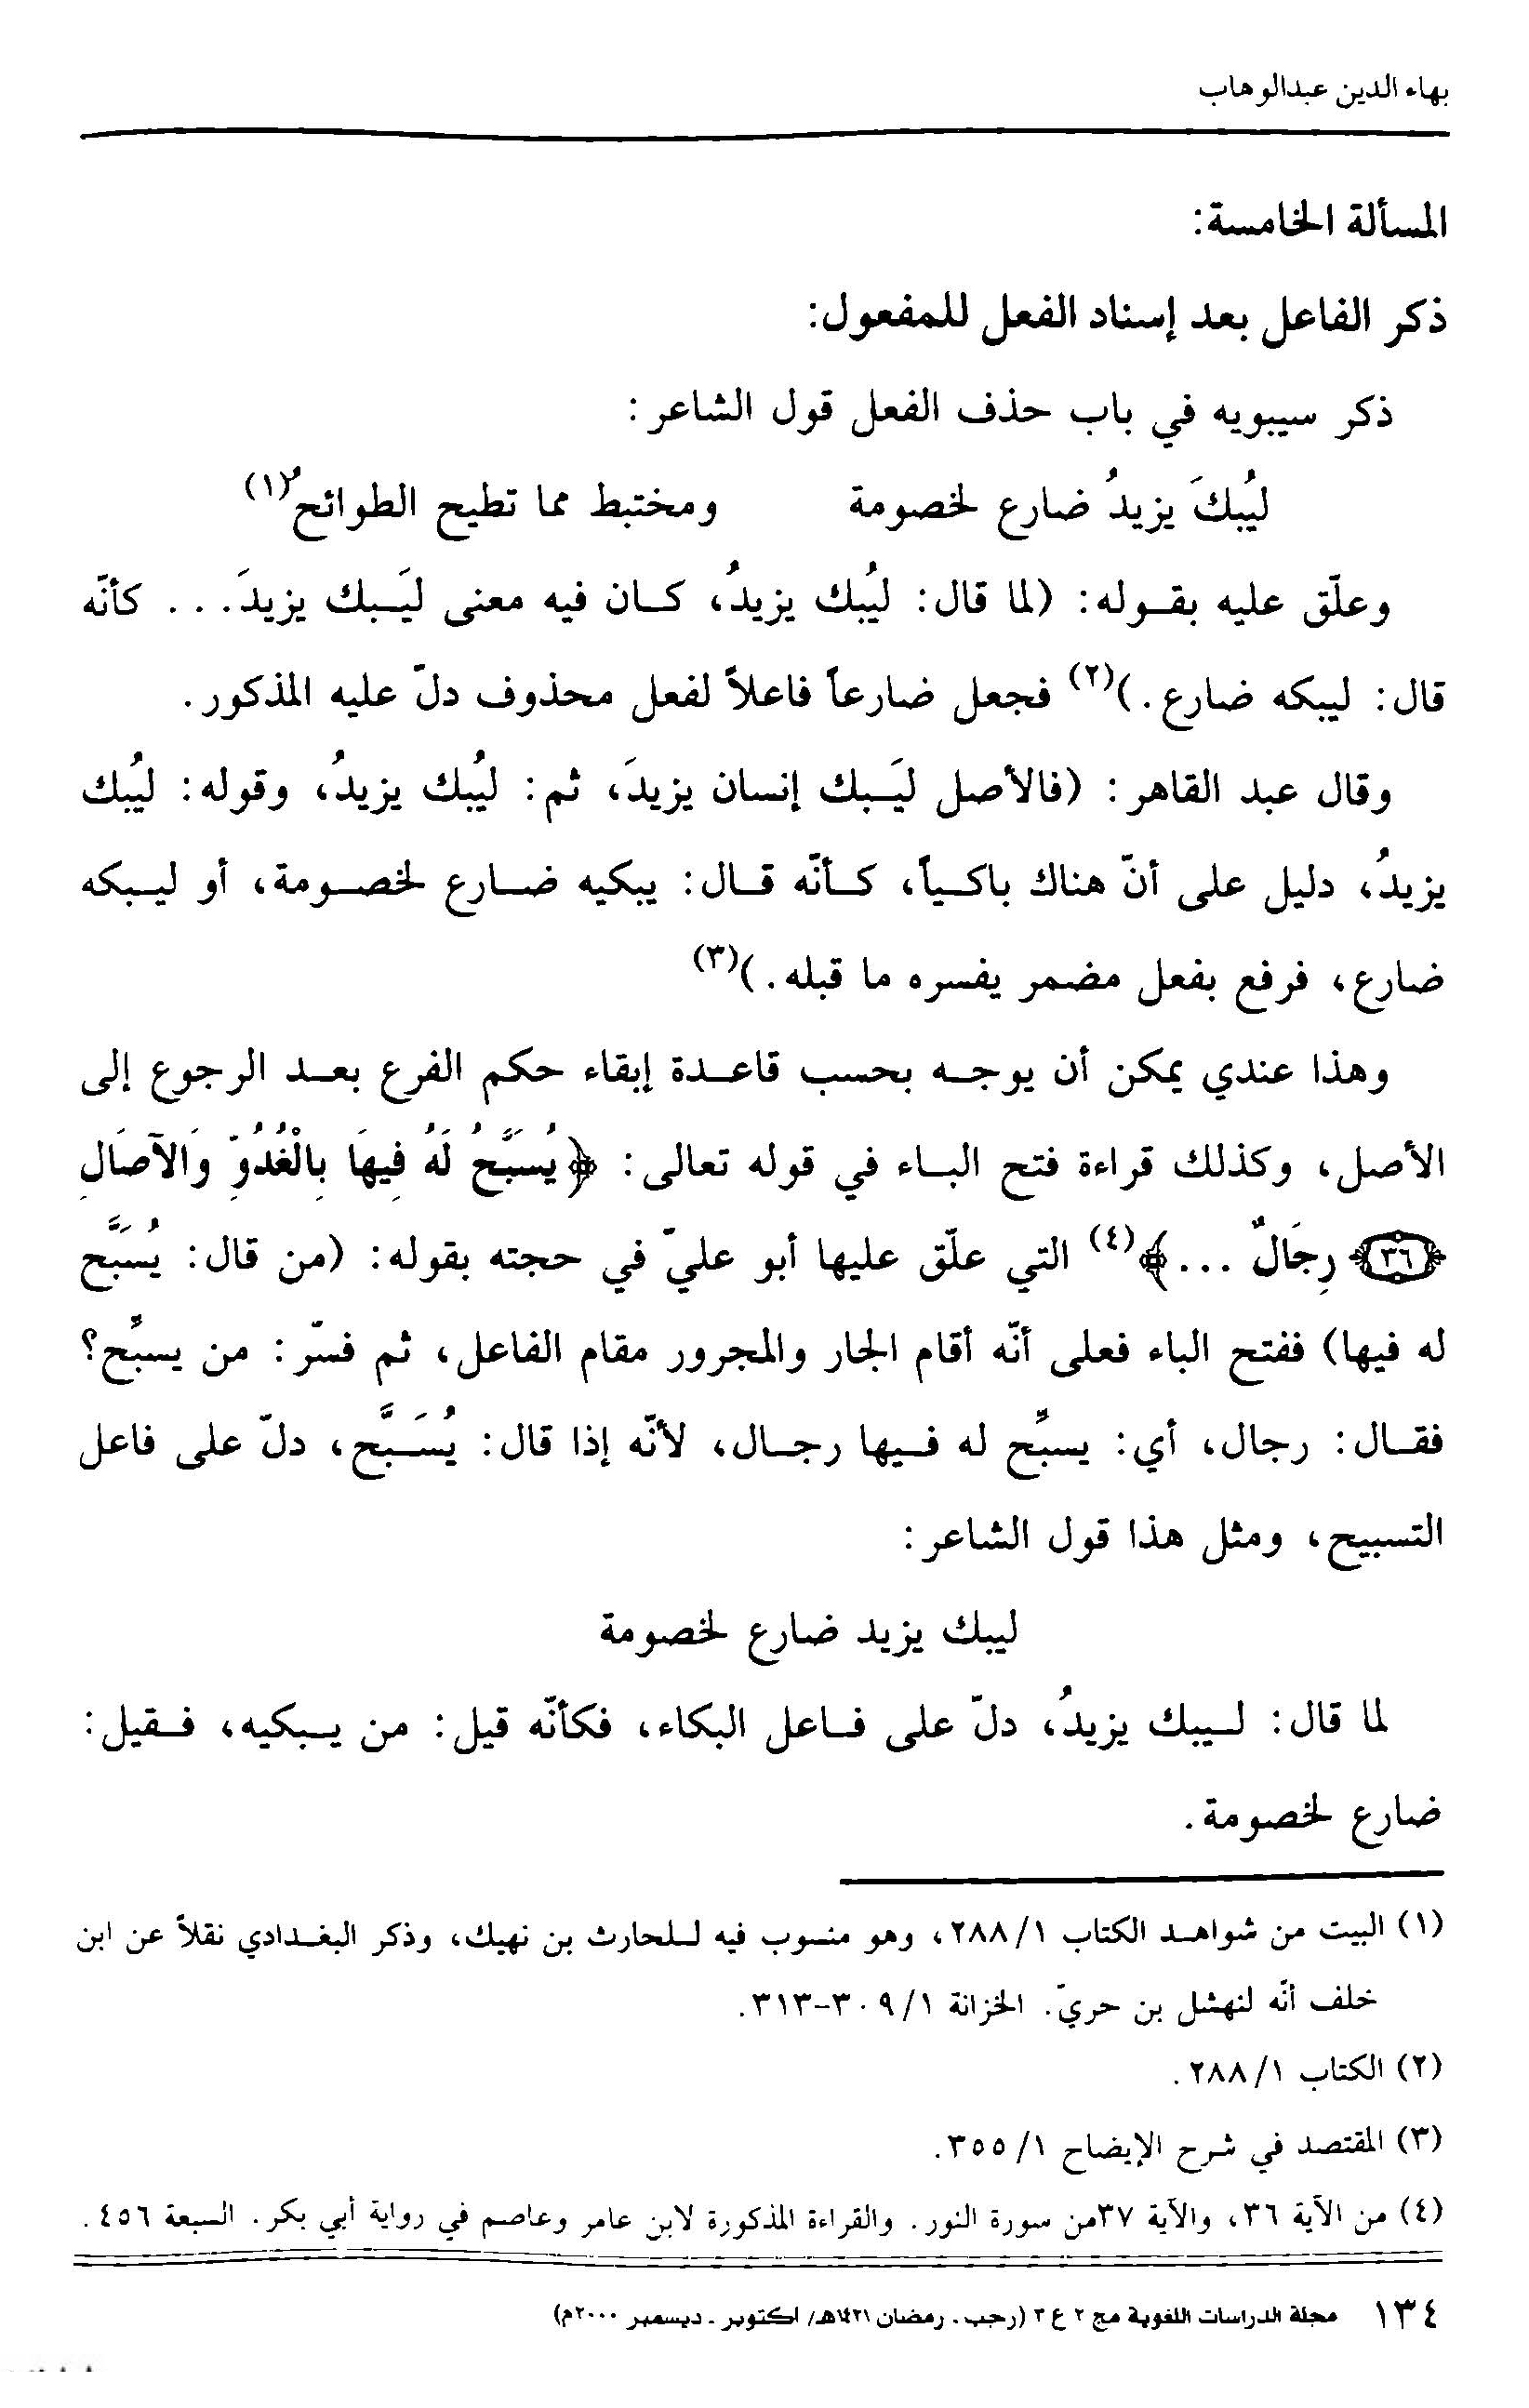 بهاء الدين عبدالوهاب
المسألة الخامسة:
ذكر الفاعل بعد إسناد الفعل للمفعول:
ذكر سيبويه في باب حذف الفعل قول الشاعر:
ليُبكَ يزيدُ ضارع لخصومة ومختبط مما تطيح الطوائحُ(١)
وعلّق عليه بقوله: (لما قال: ليُبك يزيدُ، كان فيه معنى ليَبك يزيدَ... كأنّه
قال: ليبكه ضارع.)(٢) فجعل ضارعاً فاعلاً لفعل محذوف دلّ عليه المذكور.
وقال عبد القاهر: (فالأصل ليَبك إنسان يزيدَ، ثم: ليُبك يزيدُ، وقوله: ليُبك
يزيدُ، دليل على أنّ هناك باكياً، كأنّه قال: يبكيه ضارع لخصومة، أو ليبكه
ضارع، فرفع بفعل مضمر يفسره ما قبله.)(٣)
وهذا عندي يمكن أن يوجه بحسب قاعدة إبقاء حكم الفرع بعد الرجوع إلى
الأصل، وكذلك قراءة فتح الباء في قوله تعالى: ﴿يُسَبَّحُ لَهُ فِيهَا بِالْغُدُوِّ وَالآصَالِ
﴿٣٦﴾ رِجَالٌ ...﴾(٤) التي علّق عليها أبو عليّ في حجته بقوله: (من قال: يُسَبَّح
له فيها) ففتح الباء فعلى أنّه أقام الجار والمجرور مقام الفاعل، ثم فسّر: من يسبِّح؟
فقال: رجال، أي: يسبِّح له فيها رجال، لأنّه إذا قال: يُسَبَّح، دلّ على فاعل
التسبيح، ومثل هذا قول الشاعر:
ليبك يزيد ضارع لخصومة
لما قال: ليبك يزيدُ، دلّ على فاعل البكاء، فكأنّه قيل: من يبكيه، فقيل:
ضارع لخصومة.
(١) البيت من شواهد الكتاب ١/ ٢٨٨، وهو منسوب فيه للحارث بن نهيك، وذكر البغدادي نقلاً عن ابن
خلف أنّه لنهشل بن حريّ. الخزانة ١/ ٣٠٩-٣١٣.
(٢) الكتاب ١/ ٢٨٨.
(٣) المقتصد في شرح الإيضاح ١/ ٣٥٥.
(٤) من الآية ٣٦، والآية ٣٧من سورة النور. والقراءة المذكورة لابن عامر وعاصم في رواية أبي بكر. السبعة ٤٥٦.
١٣٤ مجلة الدراسات اللغوية مج ٢ ع ٣ (رجب. رمضان ١٤٢١هـ/ اكتوبر. ديسمبر ٢٠٠٠م)